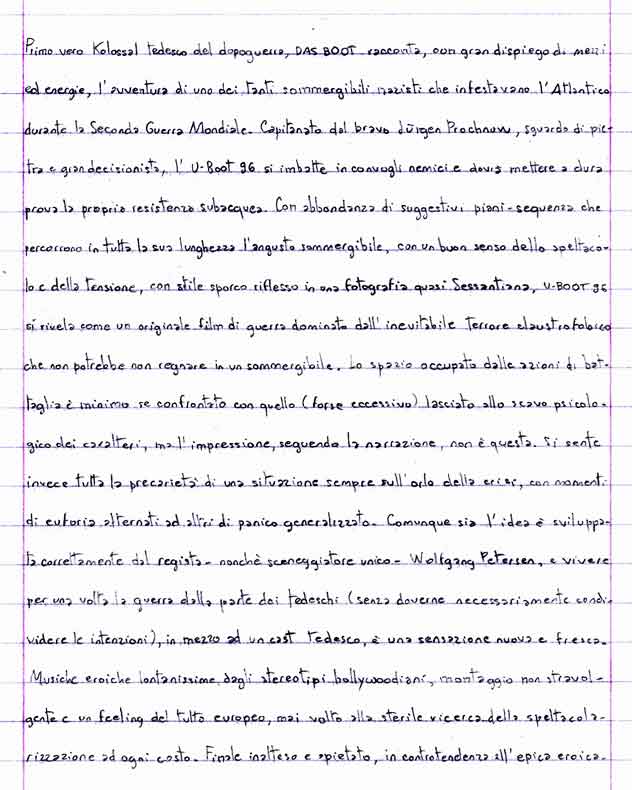 Primo vero Kolossal tedesco del dopoguerra, DAS BOOT racconta, con gran dispiego di mezzi
ed energie, l'avventura di uno dei tanti sommergibili nazisti che infestavano l'Atlantico
durante la Seconda Guerra Mondiale. Capitanato dal bravo Jürgen Prochnow, sguardo di pie-
tra e gran decisionista, l' U-Boot 96 si imbatte in convogli nemici e dovrà mettere a dura
prova la propria resistenza subacquea. Con abbondanza di suggestivi piani-sequenza che
percorrono in tutta la sua lunghezza l'angusto sommergibile, con un buon senso dello spettaco-
lo e della tensione, con stile sporco riflesso in una fotografia quasi Sessantiana, U-BOOT 96
si rivela come un originale film di guerra dominato dall' inevitabile terrore claustrofobico
che non potrebbe non regnare in un sommergibile. Lo spazio occupato dalle azioni di bat-
taglia è minimo se confrontato con quello (forse eccessivo) lasciato allo scavo psicolo-
gico dei caratteri, ma l' impressione, seguendo la narrazione, non è questa. Si sente
invece tutta la precarietà di una situazione sempre sull'orlo della crisi, con momenti
di euforia alternati ad altri di panico generalizzato. Comunque sia l'idea è sviluppa-
ta correttamente dal regista - nonchè sceneggiatore unico - Wolfgang Petersen, e vivere
per una volta la guerra dalla parte dei tedeschi (senza doverne necessariamente condi-
videre le intenzioni), in mezzo ad un cast tedesco, è una sensazione nuova e fresca.
Musiche eroiche lontanissime dagli stereotipi hollywoodiani, montaggio non stravol-
gente e un feeling del tutto europeo, mai volto alla sterile ricerca della spettacola-
rizzazione ad ogni costo. Finale inatteso e spietato, in controtendenza all'epica eroica.